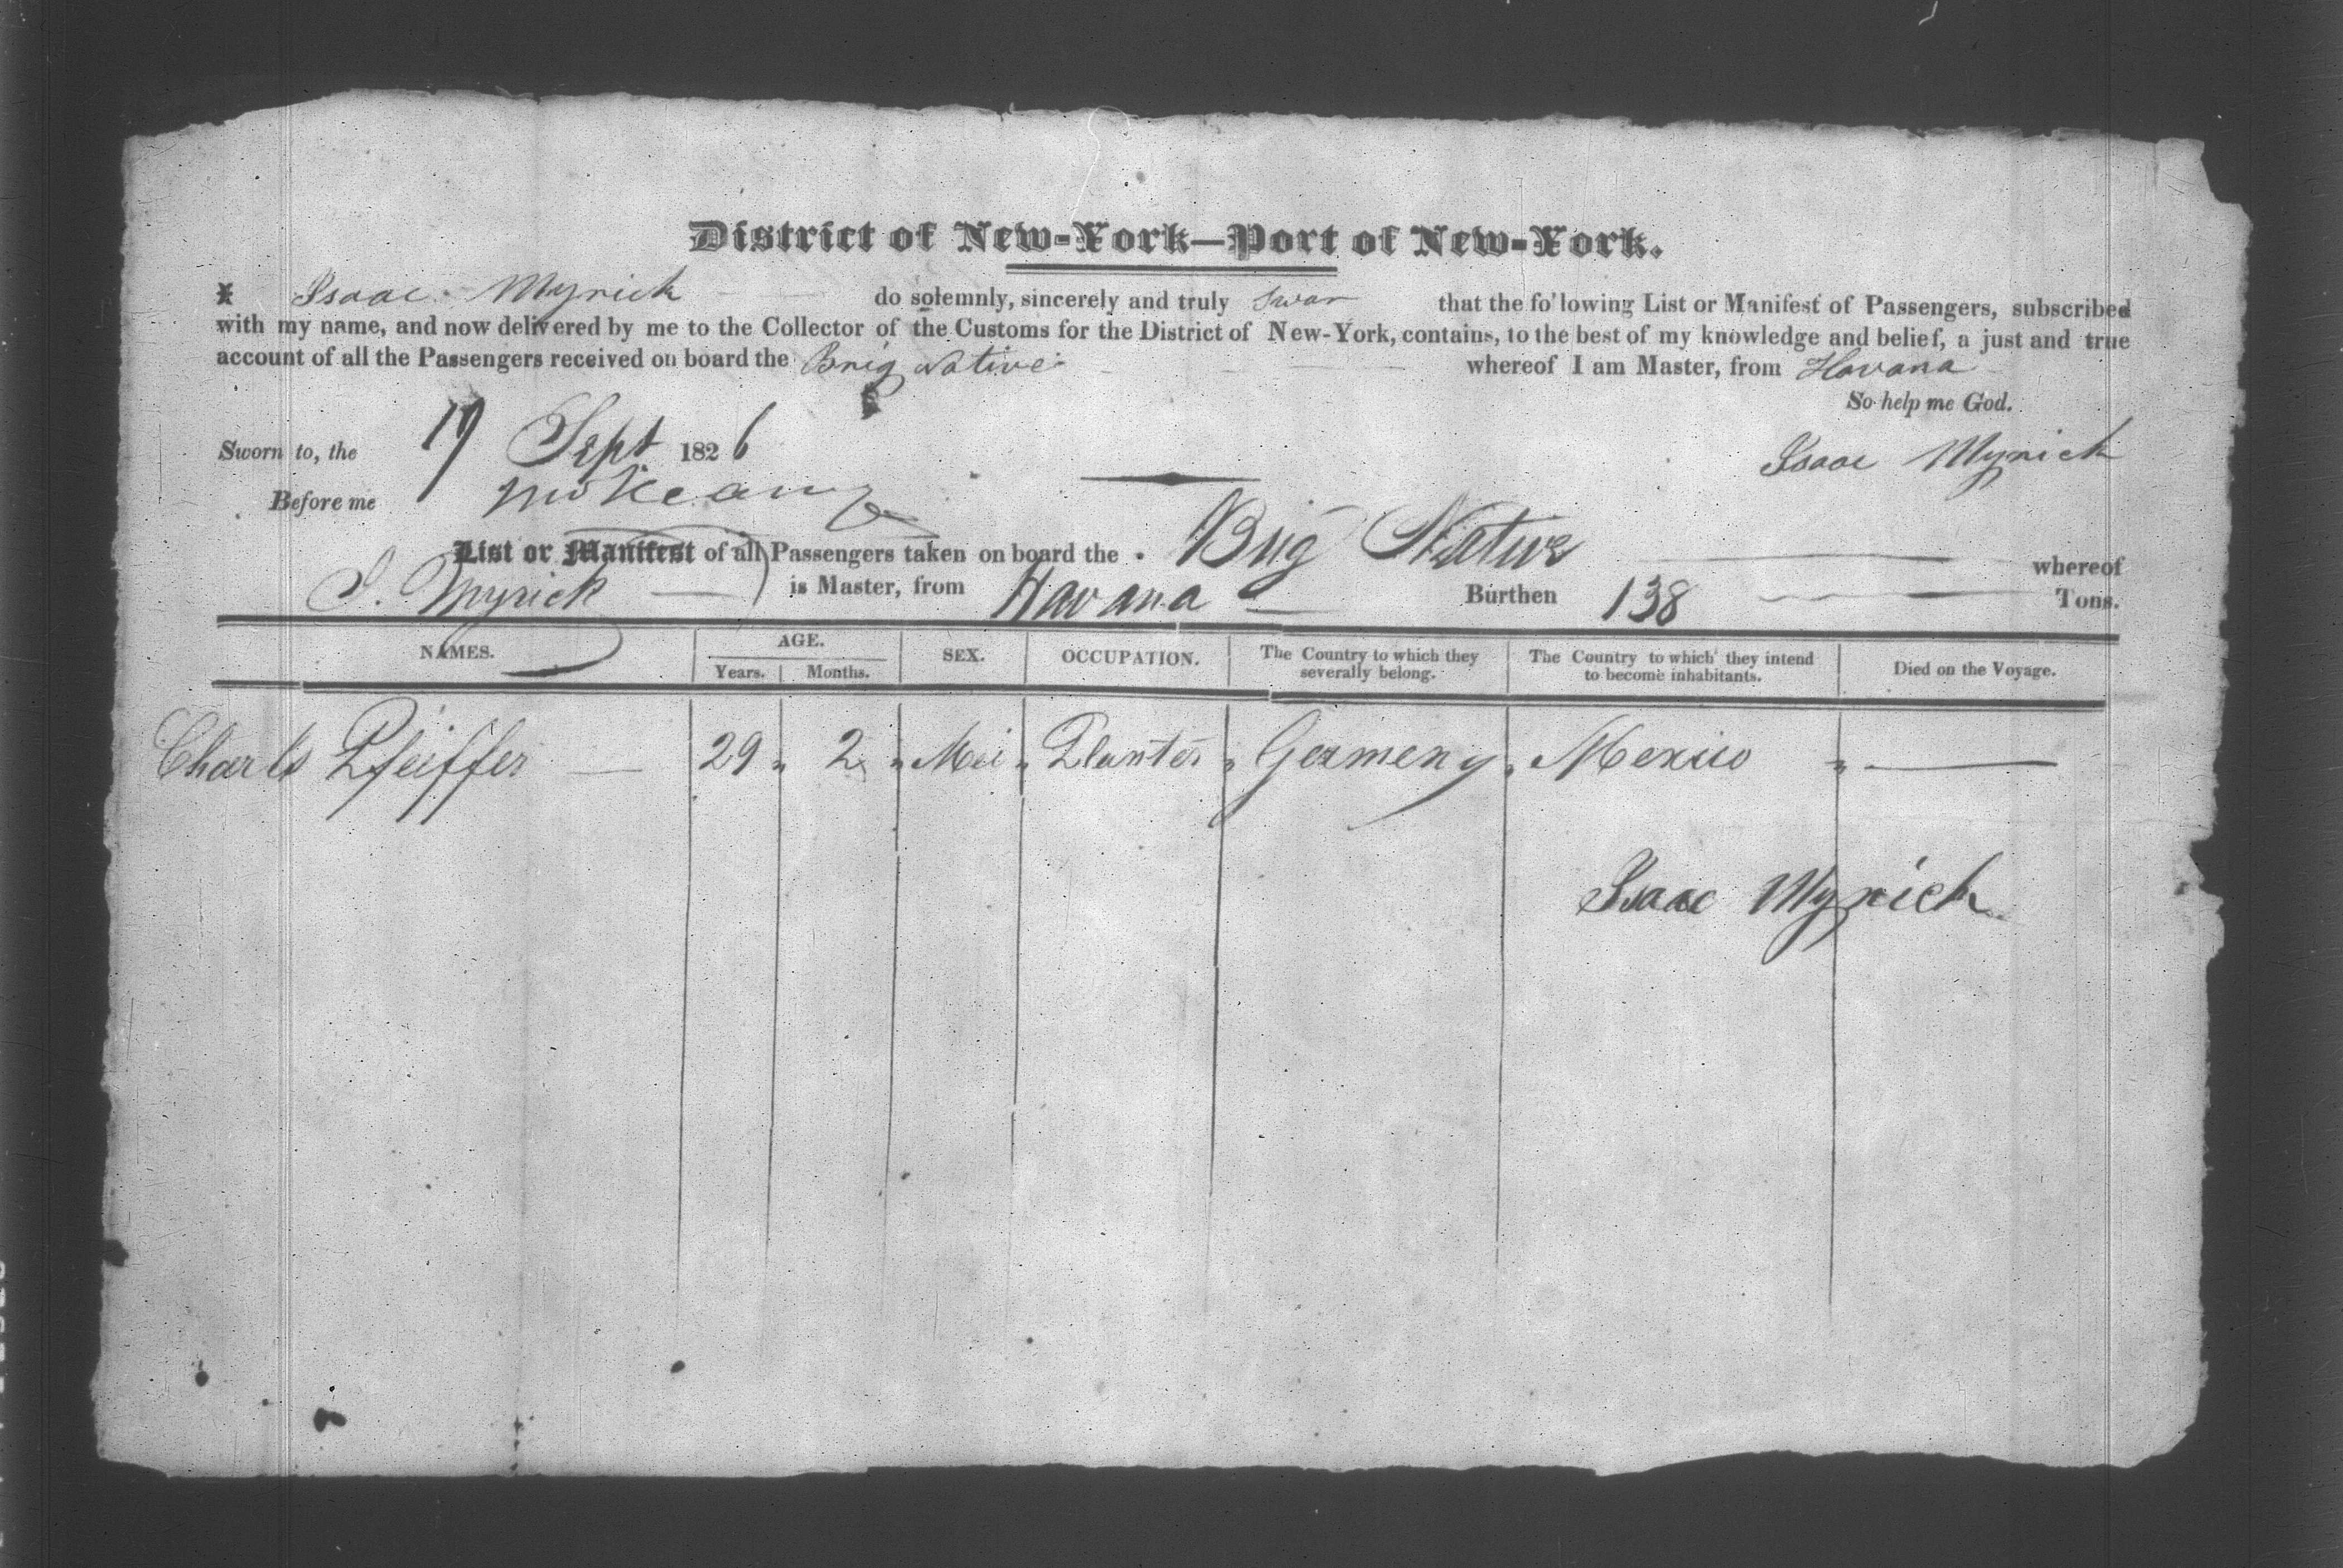 District of New-York—Port of New-York.
I Isaac Myrick do solemnly, sincerely and truly swar that the following List or Manifest of Passengers, subscribed
with my name, and now delivered by me to the Collector of the Customs for the District of New-York, contains, to the best of my knowledge and belief, a just and true
account of all the Passengers received on board the Brig Native whereof I am Master, from Havana
So help me God.
Sworn to, the 19 Sept 1826 Isaac Myrick
Before me
List or Manifest of all Passengers taken on board the Brig Native whereof
I. Myrick is Master, from Havana Burthen 138 Tons.
NAMES. AGE. Years. Months. SEX. OCCUPATION. The Country to which they severally belong. The Country to which they intend to become inhabitants. Died on the Voyage.
Charls Pfeiffer — 29 " 2 " " Planter " Germeny " Mexico " —
Isaac Myrick